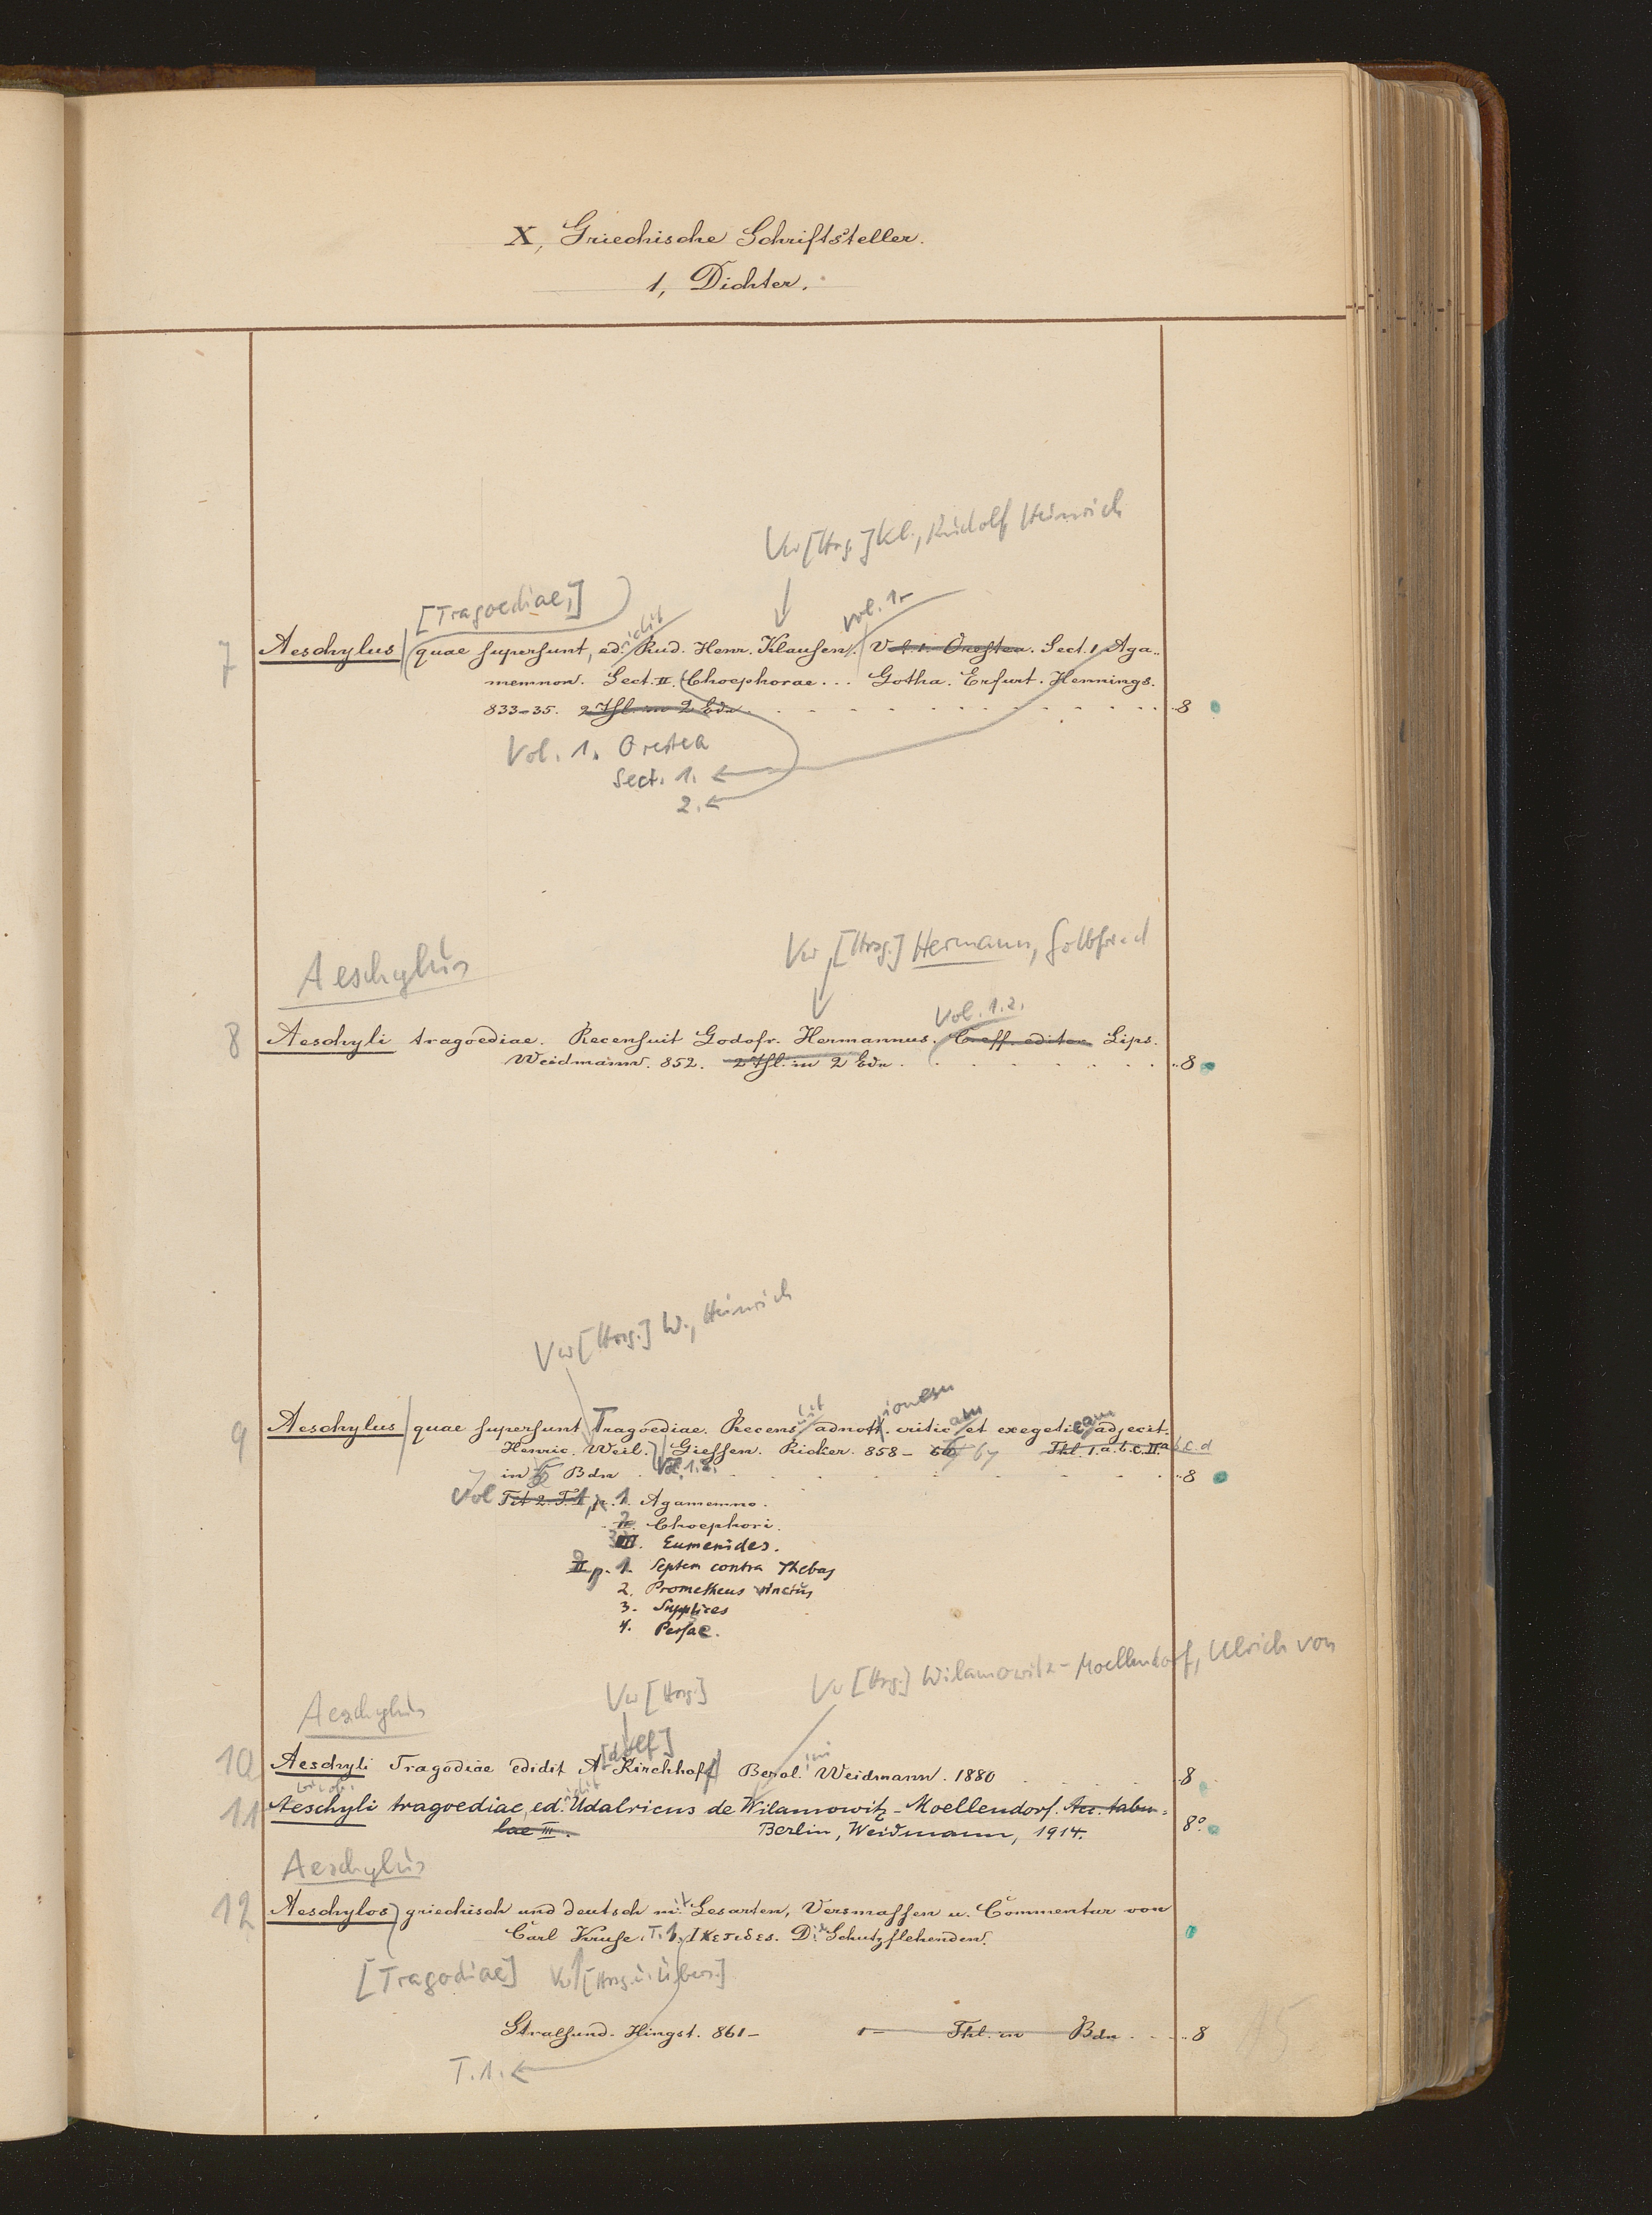 X, Griechische Schriftsteller.
1, Dichter.
Vw [Hrsg.] Kl., Rudolf Heinrich
[Tragoediae,]
idit
Vol. 1.
7 Aeschylus quae supersunt, ed. Rud. Henr. Klausen. Vol. 1. Orestea. Sect. 1 Aga-
memnon. Sect. II. Choephorae... Gotha. Erfurt. Hennings.
833-35. 2 Thl. in 2 Bdn . . . 8
Vol. 1. Orestea
Sect. 1.
2.
Aeschylus
Vw [Hrsg.] Hermann, Gottfried
Vol. 1.2.
8 Aeschyli tragoediae. Recensuit Godofr. Hermannus. editor Lips.
Weidmann. 852. 2 Thl. in 2 Bdn . . . 8
Vw [Hrsg.] W., Heinrich
ionem
9 Aeschylus quae supersunt Tragoediae. Recens adnott. critic am et exegetic am adjecit.
Henric. Weil. Giessen. Ricker. 858- 67 Thl. I. a. b. c. II. a b. c. d
7 in Bdn . Vol. 1.2. . . . 8
Vol 1, p. 1. Agamemno.
2. Choephori.
3. Eumenides.
2 p. 1. Septem contra Thebas
2. Prometheus vinctus
3. Supplices
4. Persae.
Aeschylus
Vw [Hrsg.]
Vw [Hrsg.] Wilamowitz-Moellendorf, Ulrich von
[dolf]
10 Aeschyli Tragodiae edidit A Kirchhoff Berol. ini Weidmann. 1880 . . . 8
idit
11 Aeschyli tragoediae, ed. Udalricus de Wilamowitz-Moellendorf. Acc. tabu-
lae III. Berlin, Weidmann, 1914. 8°.
Aeschylus
12 Aeschylos griechisch und deutsch mit Lesarten, Versmassen u. Commentar von
Carl Kruse. T. 1. Ικετιδες. Die Schutzflehenden.
[Tragodiae] Vw [Hrsg. u. Übers.]
Stralsund. Hingst. 861- 1- Thl. in Bdn . . . 8
T. 1.